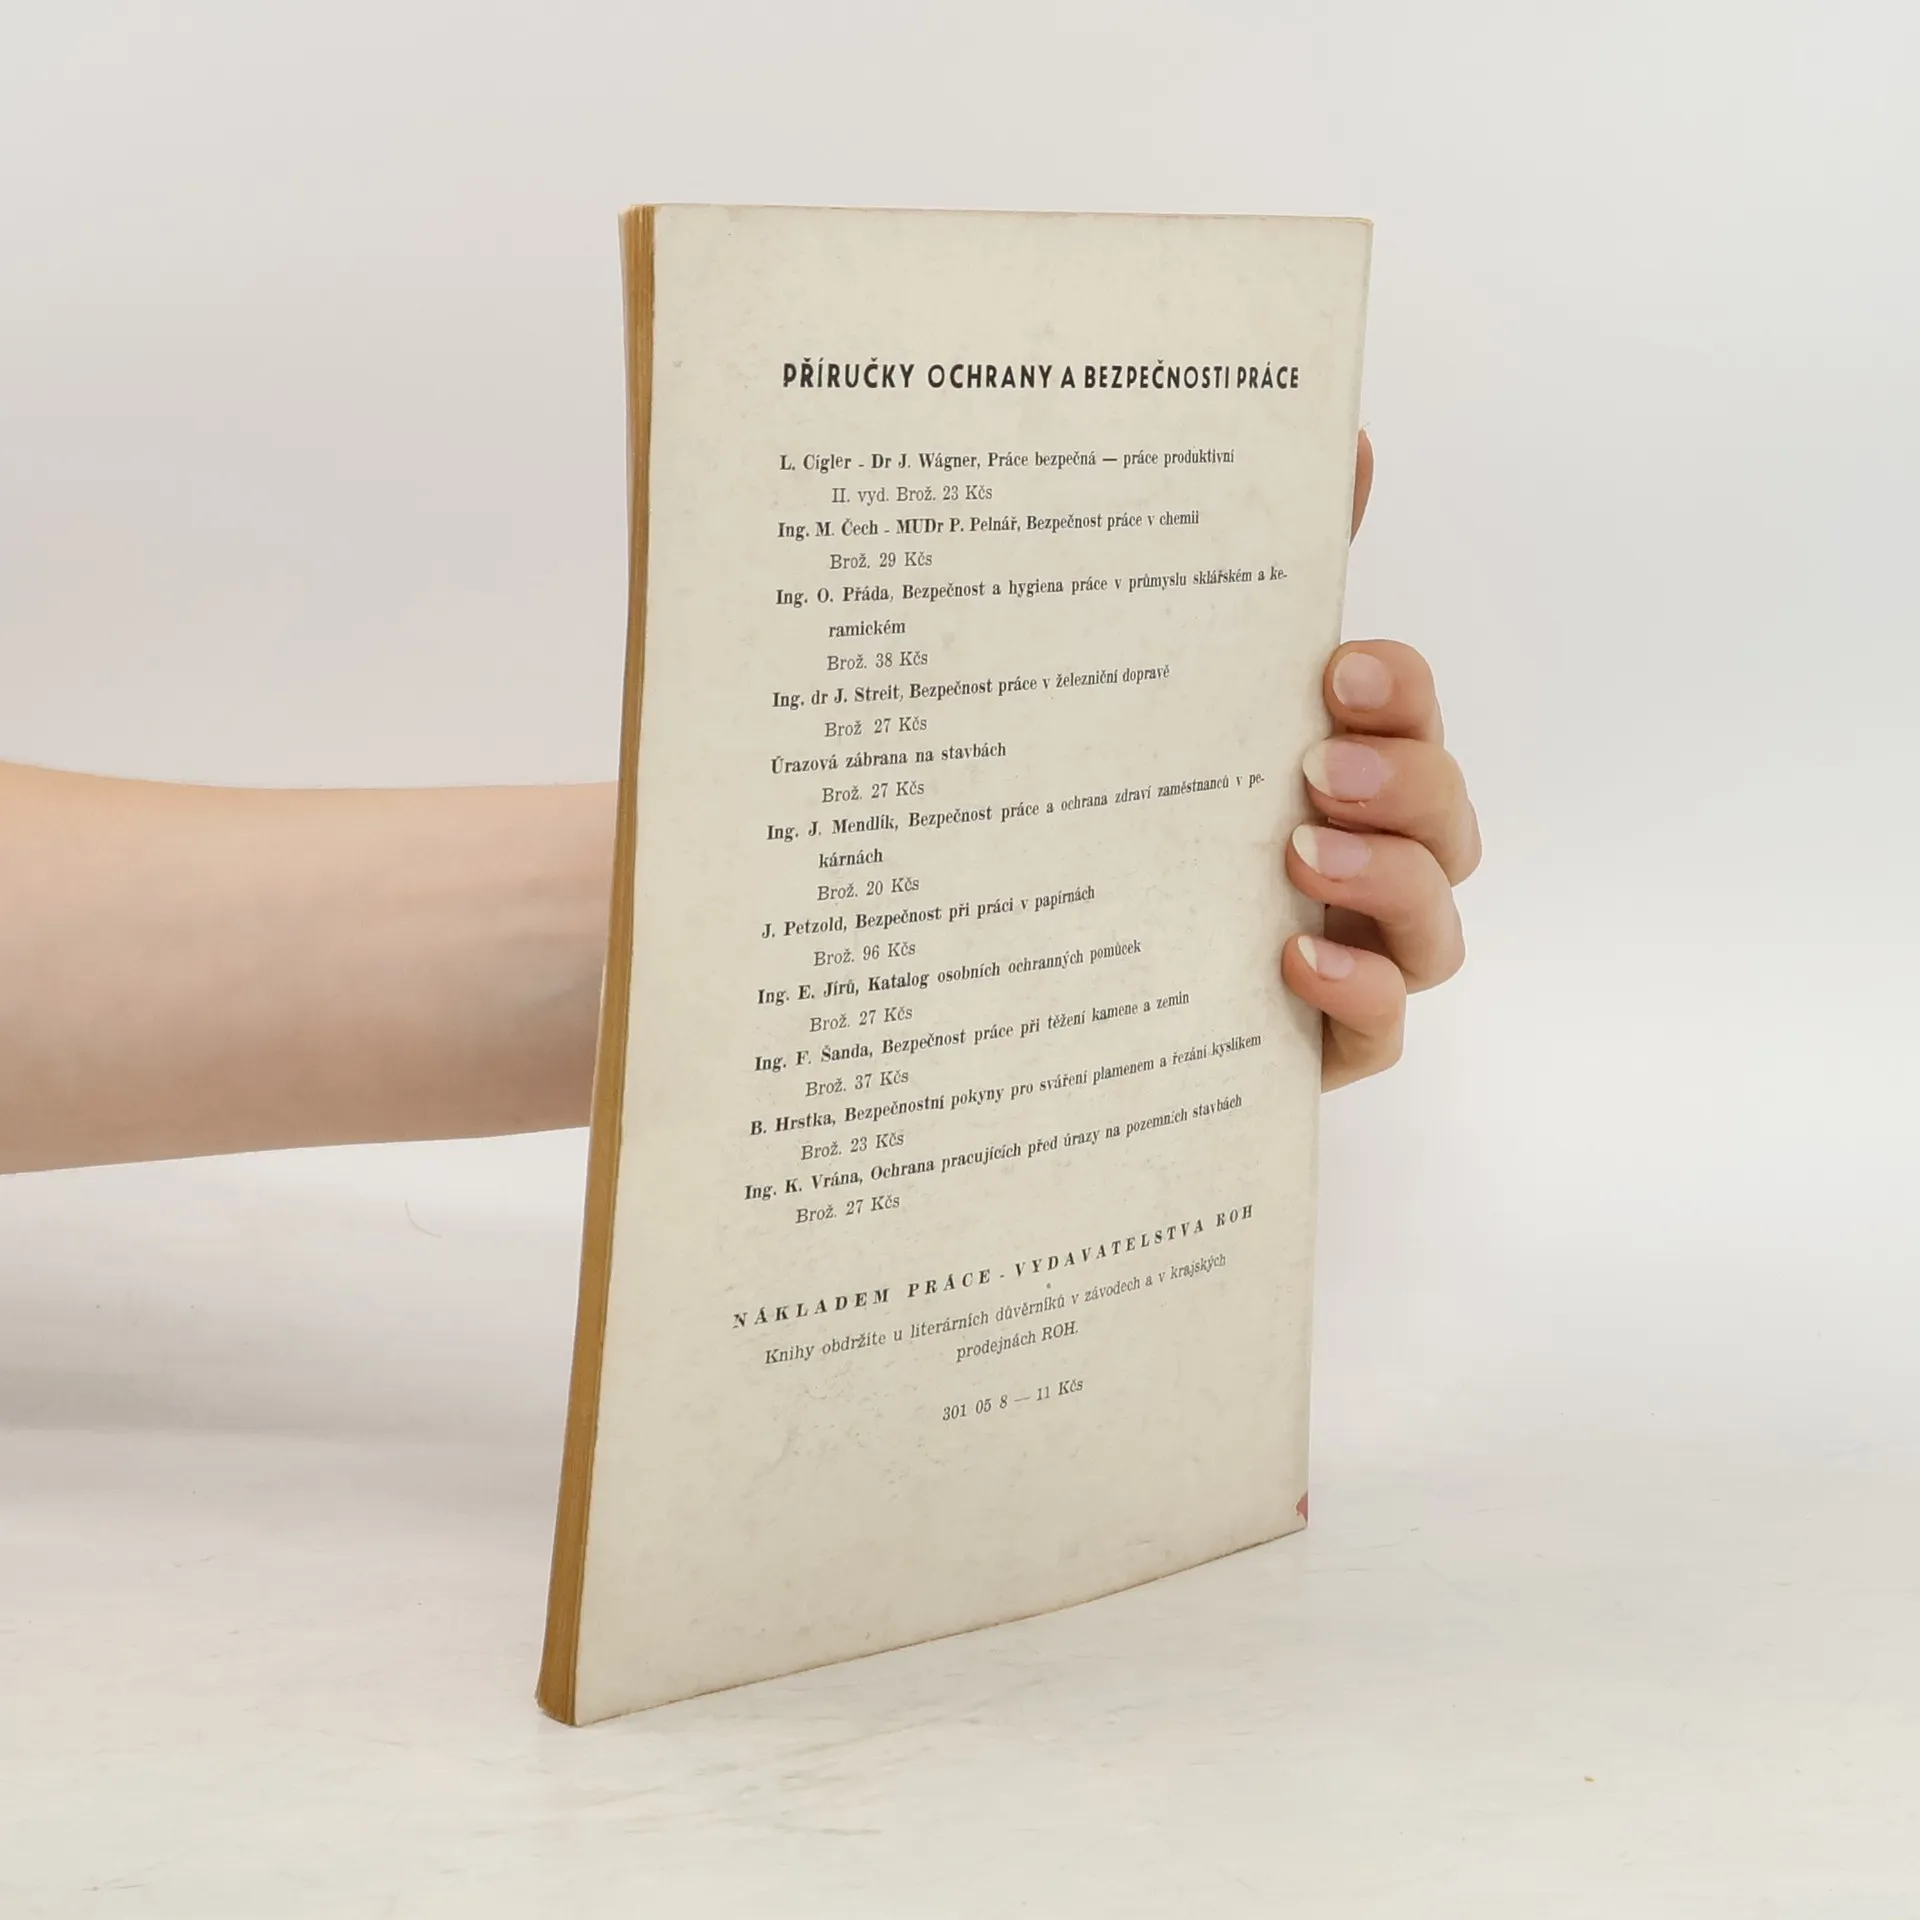 PŘÍRUČKY OCHRANY A BEZPEČNOSTI PRÁCE
L. Cígler - Dr J. Wágner, Práce bezpečná — práce produktivní
II. vyd. Brož. 23 Kčs
Ing. M. Čech - MUDr P. Pelnář, Bezpečnost práce v chemii
Brož. 29 Kčs
Ing. O. Přáda, Bezpečnost a hygiena práce v průmyslu sklářském a ke-
ramickém
Brož. 38 Kčs
Ing. dr J. Streit, Bezpečnost práce v železniční dopravě
Brož 27 Kčs
Úrazová zábrana na stavbách
Brož. 27 Kčs
Ing. J. Mendlík, Bezpečnost práce a ochrana zdraví zaměstnanců v pe-
kárnách
Brož. 20 Kčs
J. Petzold, Bezpečnost při práci v papírnách
Brož. 96 Kčs
Ing. E. Jírů, Katalog osobních ochranných pomůcek
Brož. 27 Kčs
Ing. F. Šanda, Bezpečnost práce při těžení kamene a zemin
Brož. 37 Kčs
B. Hrstka, Bezpečnostní pokyny pro sváření plamenem a řezání kyslíkem
Brož. 23 Kčs
Ing. K. Vrána, Ochrana pracujících před úrazy na pozemních stavbách
Brož. 27 Kčs
NÁKLADEM PRÁCE - VYDAVATELSTVA ROH
Knihy obdržíte u literárních důvěrníků v závodech a v krajských
prodejnách ROH.
301 05 8 — 11 Kčs